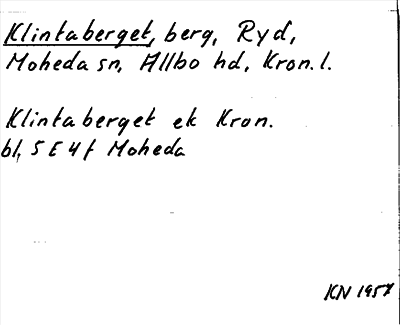 Klintaberget, berg, Ryd,
Moheda sn, Allbo hd, Kron. l.
Klintaberget ek Kron.
bl, 5 E 4 f Moheda
KN 1957